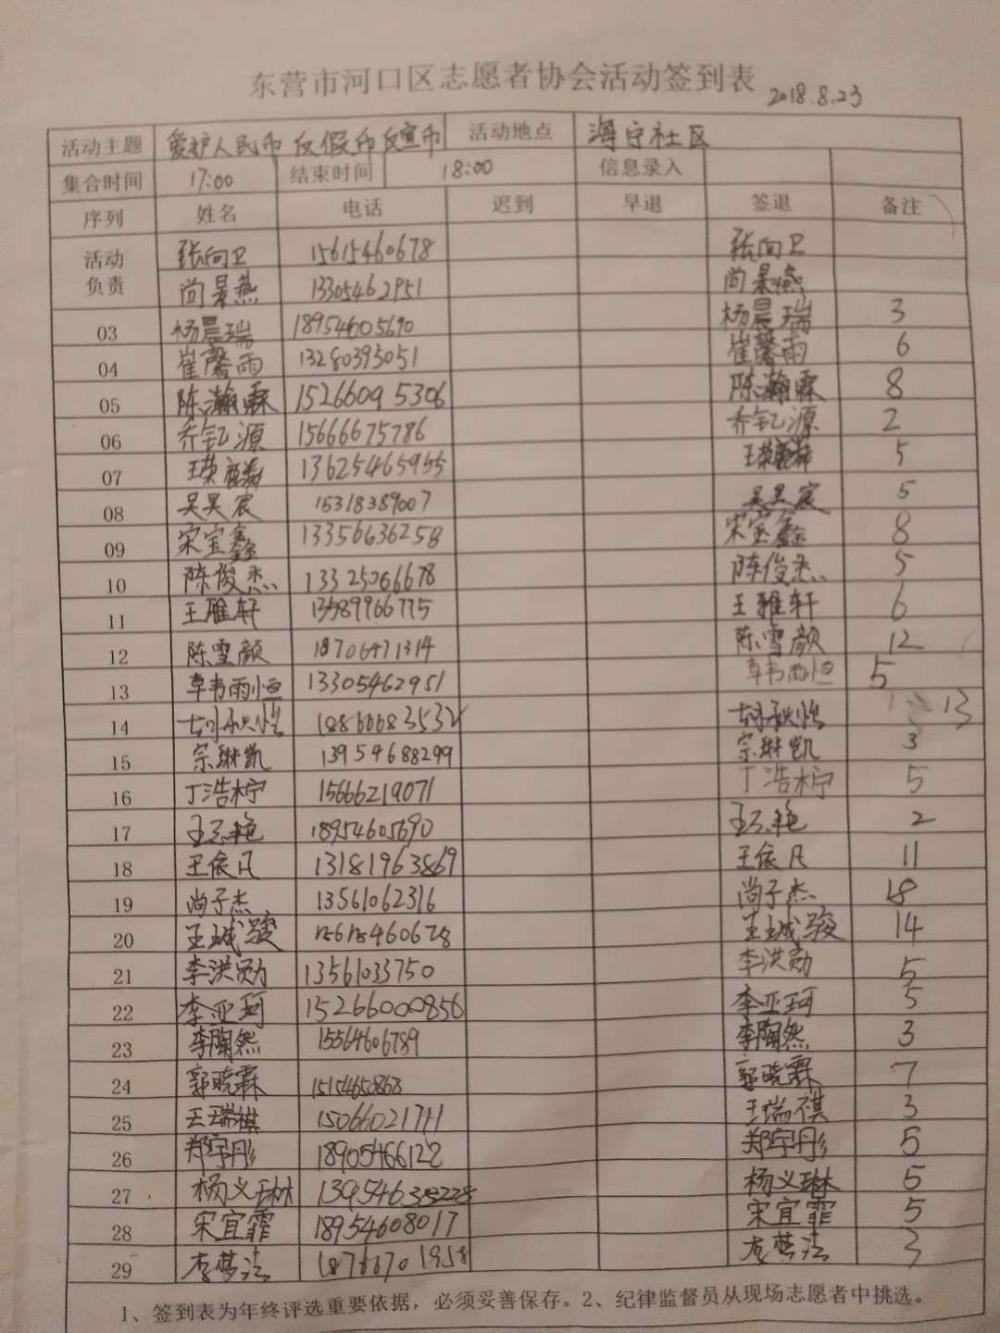 东营市河口区志愿者协会活动签到表 2018.8.23
活动主题 爱护人民币 反假币 活动地点 海宁社区
集合时间 17:00 结束时间 18:00 信息录入
序列 姓名 电话 迟到 早退 签退 备注
活动负责 张向卫 15615460678 张向卫
尚景燕 13305462951 尚景燕
03 杨晨瑞 18954605690 杨晨瑞 3
04 崔馨雨 13280393051 崔馨雨 6
05 陈瀚霖 15266095306 陈瀚霖 8
06 乔钇源 15666675786 乔钇源 2
07 王荣 13625465955 王荣 5
08 吴昊宸 15318389007 吴昊宸 5
09 宋宝鑫 13356636258 宋宝鑫 8
10 陈俊杰 13325066678 陈俊杰 5
11 王雅轩 13589966775 王雅轩 6
12 陈雪颜 18706471314 陈雪颜 12
13 韦雨恒 13305462951 韦雨恒 5
14 胡秋怡 18860683532 胡秋怡 13
15 宗琳凯 13954688299 宗琳凯 3
16 丁浩柠 15666219071 丁浩柠 5
17 18954605690 2
18 王依凡 13181963869 王依凡 11
19 尚子杰 13561062316 尚子杰 18
20 王珹骏 15615460678 王珹骏 14
21 李洪勋 13561033750 李洪勋 5
22 李亚珂 15266000856 李亚珂 5
23 李陶然 15564606789 李陶然 3
24 郭晓霖 15154650868 郭晓霖 7
25 王瑞祺 15066021711 王瑞祺 3
26 郑宇彤 18905466122 郑宇彤 5
27 杨义琳 杨义琳 5
28 宋宜霏 18954608017 宋宜霏 5
29 李梦洁 18766701958 李梦洁 3
1、签到表为年终评选重要依据，必须妥善保存。2、纪律监督员从现场志愿者中挑选。